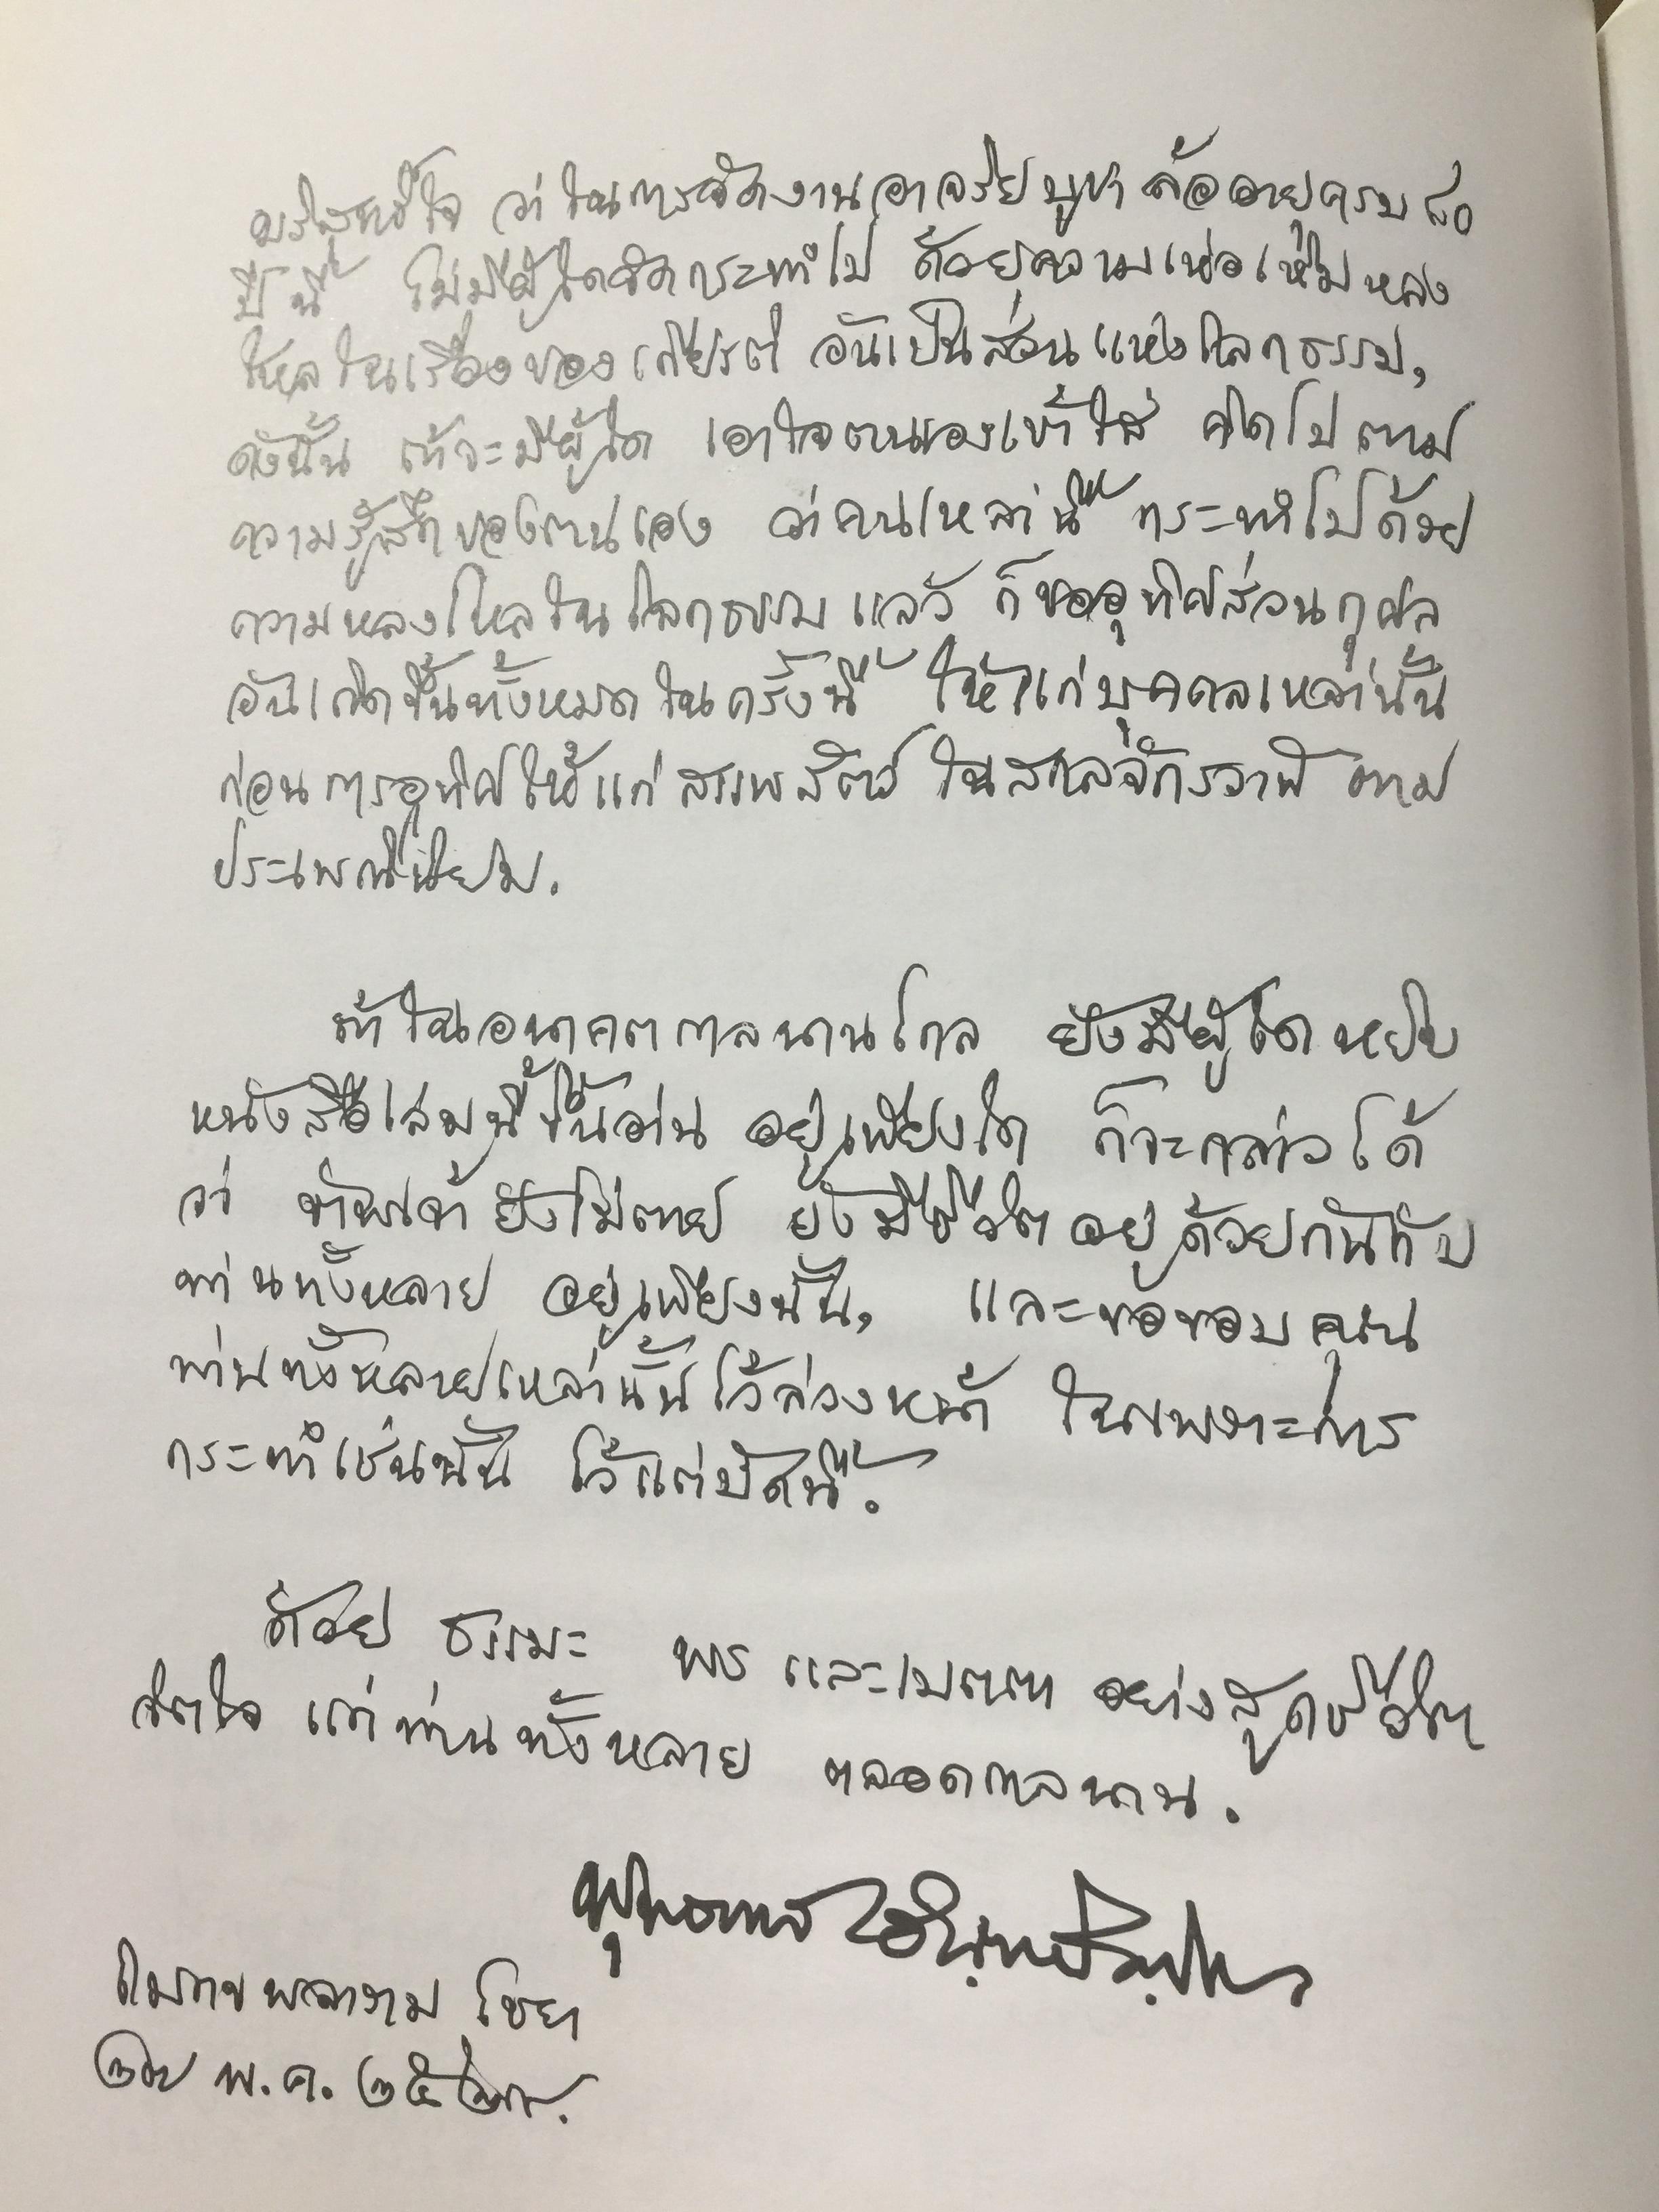 บริสุทธิ์ใจ ว่าในการจัดงานอาจริยบูชา ล้ออายุครบ ๘๐
ปีนี้ ไม่มีผู้ใดจัดกระทำไป ด้วยความเห่อเหิมหลง
ใหลในเรื่องของเกียรติ อันเป็นส่วนแห่งโลกธรรม,
ดังนั้น ถ้าจะมีผู้ใด เอาใจตนเองเข้าใส่ คิดไปตาม
ความรู้สึกของตนเอง ว่าคนเหล่านี้ กระทำไปด้วย
ความหลงใหลในโลกธรรมแล้ว ก็ขออุทิศส่วนกุศล
อันเกิดขึ้นทั้งหมดในครั้งนี้ ให้แก่บุคคลเหล่านั้น
ก่อนการอุทิศให้แก่สรรพสัตว์ ในสกลจักรวาฬ ตาม
ประเพณีนิยม.
ถ้าในอนาคตกาลนานไกล ยังมีผู้ใดหยิบ
หนังสือเล่มนี้ขึ้นอ่าน อยู่เพียงใด ก็จะกล่าวได้
ว่า ข้าพเจ้า ยังไม่ตาย ยังมีชีวิตอยู่ด้วยกันกับ
ท่านทั้งหลาย อยู่เพียงนั้น, และขอขอบคุณ
ท่านทั้งหลายเหล่านั้นไว้ล่วงหน้า ในเพราะการ
กระทำเช่นนั้น ไว้แต่บัดนี้.
ด้วย ธรรมะ พร และเมตตา อย่างสุดชีวิต
จิตใจ แก่ท่านทั้งหลาย ตลอดกาลนาน.
พุทธทาส อินทปัญโญ
โมกขพลาราม ไชยา
๒๗ พ.ค. ๒๕๒๙.